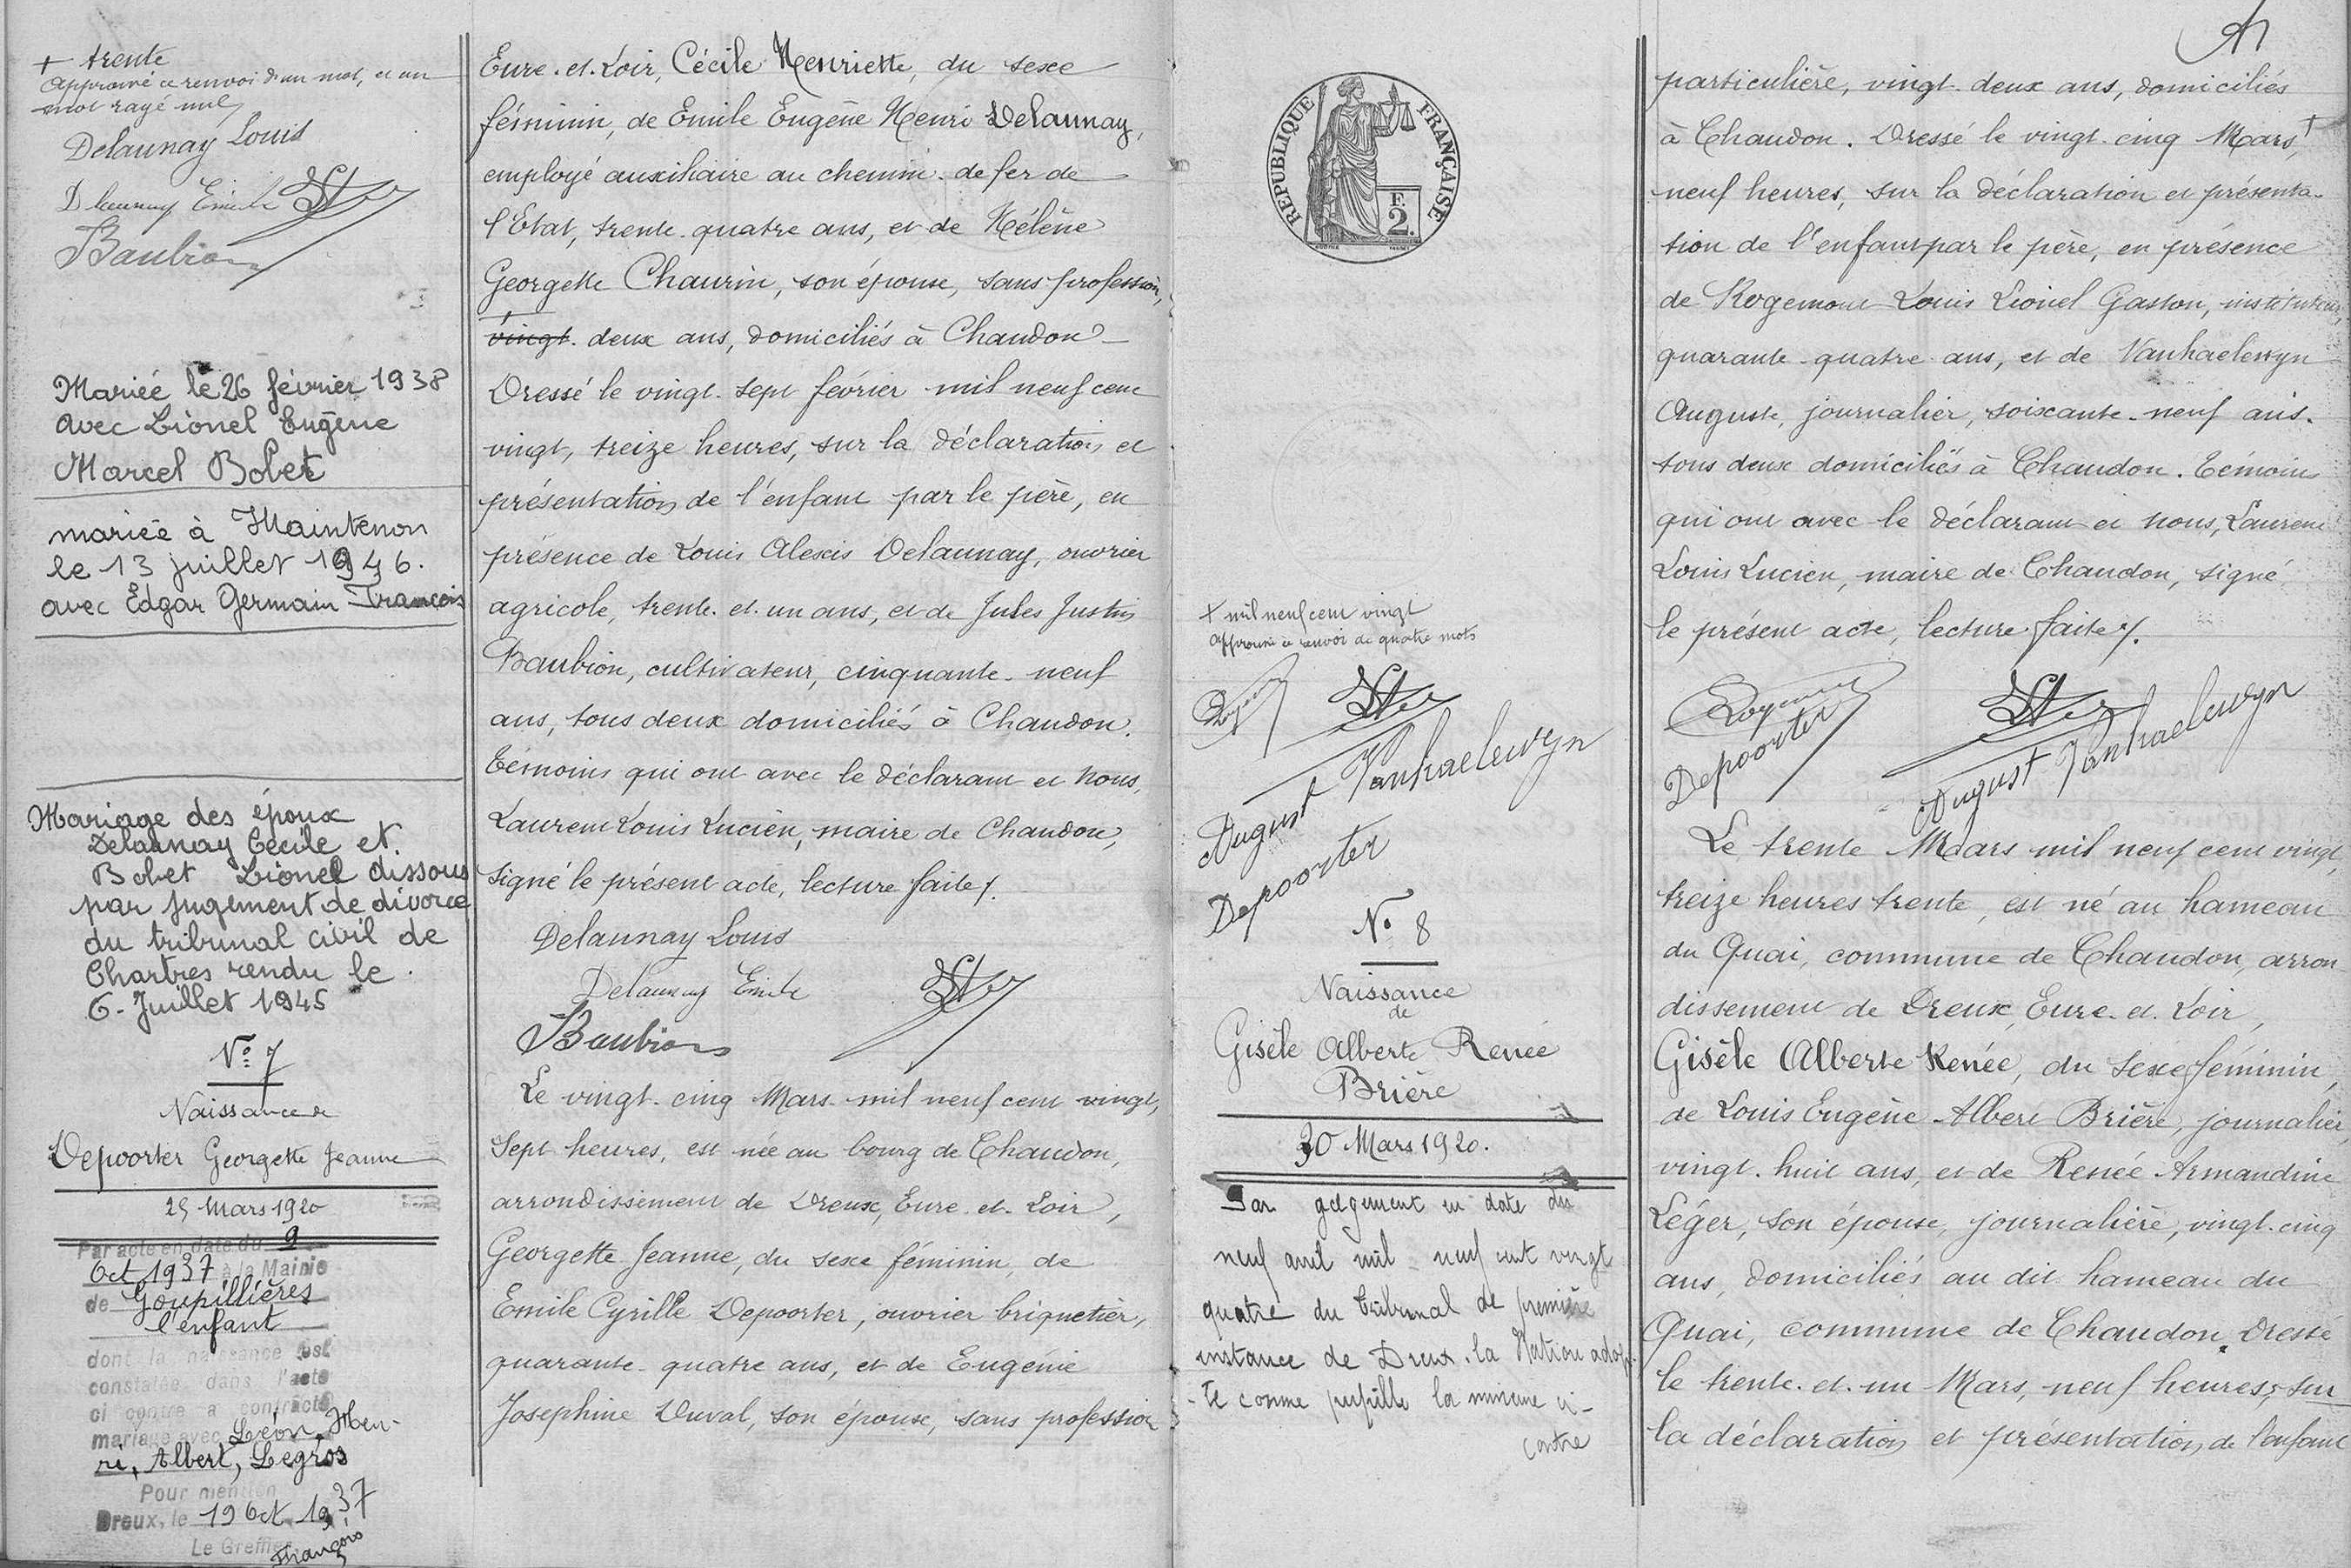 + trente
Approuvé ce renvoi d'un mot, et un
mot rayé nul
Delaunay Louis
Delaunay Emile
Baubion
Mariée le 26 février 1938
avec Lionel Eugène
Marcel Bobet
mariée à Maintenon
le 13 juillet 1946.
avec Edgar Germain François
Mariage des époux
Delaunay Cécile et
Bobet Lionel dissous
par jugement de divorce
du tribunal civil de
Chartres rendu le
6 - Juillet 1945
N° 7
Naissance de
Depoorter Georgette Jeanne
25 Mars 1920
Par acte en date du 9
Oct 1937 à la Mairie
de Goupillières
l'enfant
dont la naissance est
constatée dans l'acte
ci contre a contracté
mariage avec Léon, Hen-
ri, Albert, Legros
Pour mention
Dreux, le 19 Oct 1937
Le Greffier
François
Eure-et-Loir, Cécile Henriette, du sexe
féminin, de Emile Eugène Henri Delaunay,
employé auxiliaire au chemin de fer de
l'Etat, trente-quatre ans, et de Hélène
Georgette Chaurin, son épouse, sans profession,
+
vingt-deux ans, domiciliés à Chaudon
Dressé le vingt-sept février mil neuf cent
vingt, treize heures, sur la déclaration et
présentation de l'enfant par le père, en
présence de Louis Alexis Delaunay, ouvrier
agricole, trente-et-un ans, et de Jules Justin
Baubion, cultivateur, cinquante-neuf
ans, tous deux domiciliés à Chaudon.
Témoins qui ont avec le déclarant et nous,
Laurent Louis Lucien, maire de Chaudon,
signé le présent acte, lecture faite /.
Delaunay Louis
Delaunay Emile
Baubion
Le vingt-cinq Mars mil neuf cent vingt,
sept heures, est née au bourg de Chaudon,
arrondissement de Dreux, Eure-et-Loir,
Georgette Jeanne, du sexe féminin, de
Emile Cyrille Depoorter, ouvrier briquetier,
quarante-quatre ans, et de Eugénie
Josephine Duval, son épouse, sans profession
RÉPUBLIQUE FRANÇAISE
F.
2.
+ mil neuf cent vingt
Approuvé ce renvoi de quatre mots
August Vanhaelewyn
Depoorter
N° 8
Naissance
de
Gisèle Alberte Renée
Brière
30 Mars 1920.
Par jugement en date du
neuf avril mil neuf cent vingt
quatre du tribunal de première
instance de Dreux, la Nation adop-
-te comme pupille la mineure ci-
contre
particulière, vingt-deux ans, domiciliés
à Chaudon. Dressé le vingt-cinq Mars, +
neuf heures, sur la déclaration et présenta-
tion de l'enfant par le père, en présence
de Rogemont Louis Lionel Gaston, instituteur,
quarante-quatre ans, et de Vanhaelewyn
Auguste, journalier, soixante-neuf ans.
tous deux domiciliés à Chaudon. Témoins
qui ont avec le déclarant et nous, Laurent
Louis Lucien, maire de Chaudon, signé
le présent acte, lecture faite /.
Depoorter
August Vanhaelewyn
Le trente Mars mil neuf cent vingt,
treize heures trente, est né au hameau
du Quai, commune de Chaudon, arron
dissement de Dreux, Eure-et-Loir,
Gisèle Alberte Renée, du sexe féminin,
de Louis Eugène Albert Brière, journalier
vingt-huit ans, et de Renée Armandine
Léger, son épouse, journalière, vingt-cinq
ans, domiciliés au dit hameau du
Quai, commune de Chaudon. Dressé
le trente-et-un Mars, neuf heures, sur
la déclaration et présentation de l'enfant